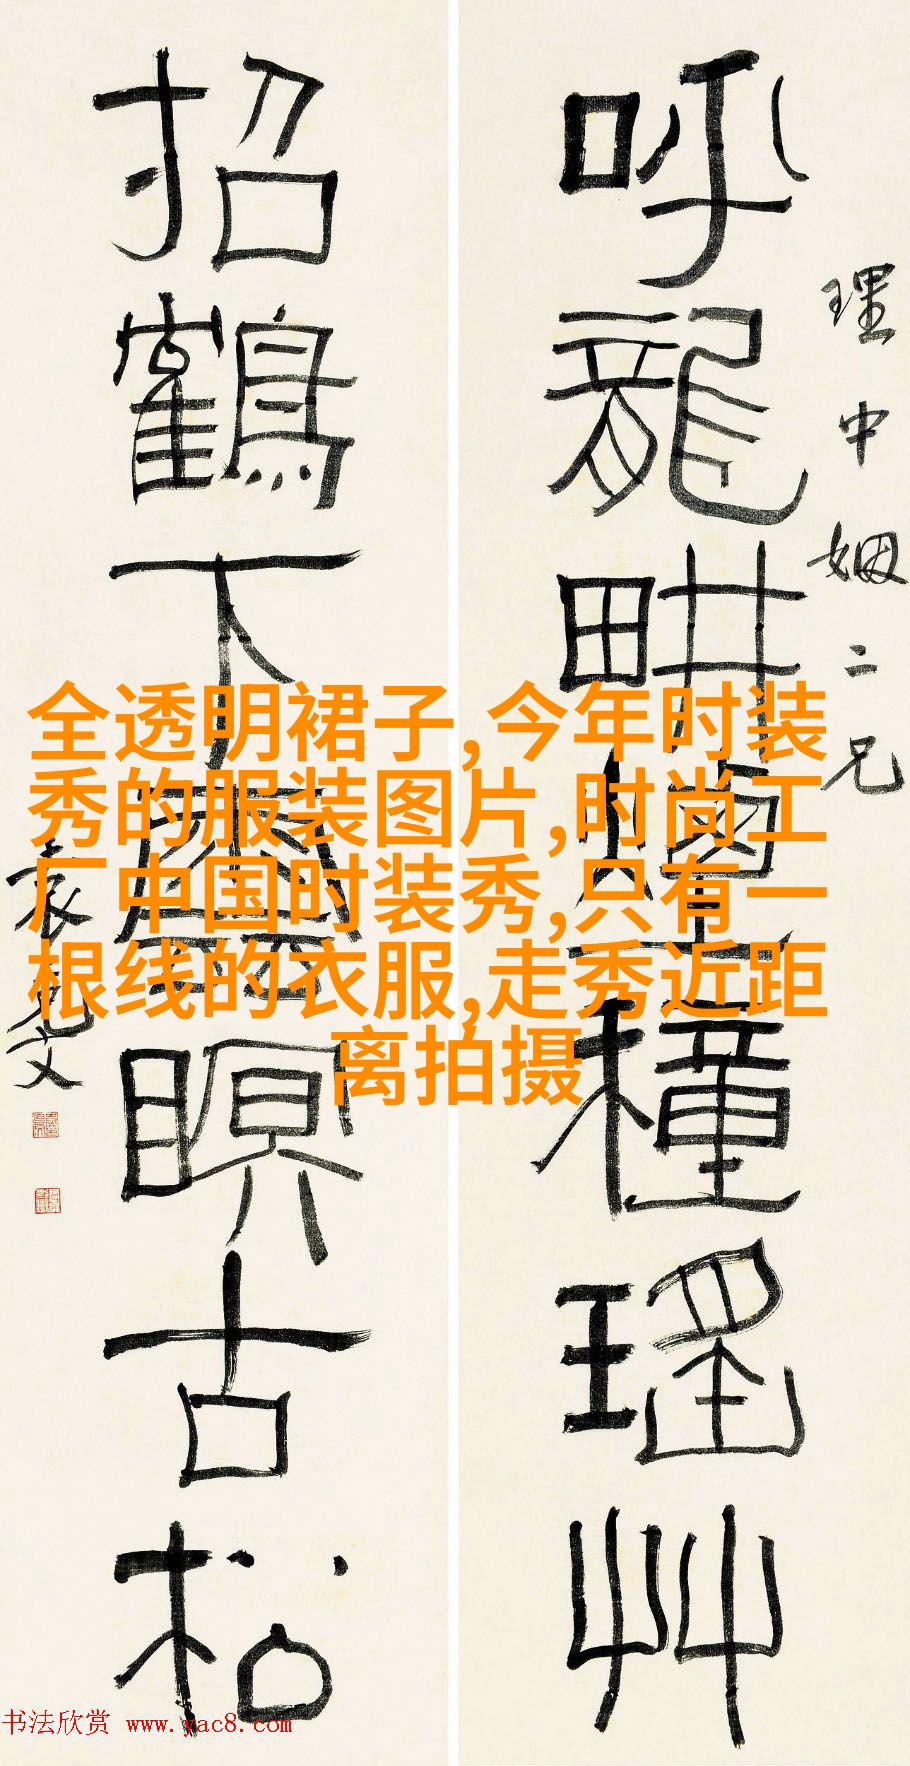 呼龍畊煙種瑤艸
理中姻二兄
招鶴下
瞑古松
袁克文
全透明裙子,今年时装
秀的服装图片,时尚工
厂中国时装秀,只有一
根线的衣服,走秀近距
离拍摄
书法欣赏 www.yac8.com